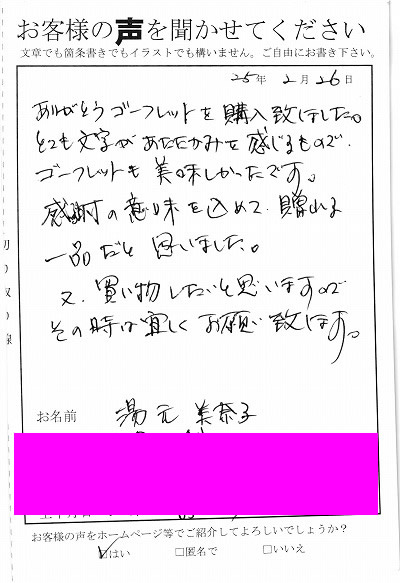 お客様の声を聞かせてください
文章でも箇条書きでもイラストでも構いません。ご自由にお書き下さい。
25年 2月 26日
ありがとうゴーフレットを購入致しました。
とても文字があたたかみを感じるもので、
ゴーフレットも美味しかったです。
感謝の意味を込めて、贈れる
一品だと思いました。
又、買い物したいと思いますので
その時は宜しくお願い致します。
切り取り線
お名前 湯元 美奈子
お客様の声をホームページ等でご紹介してよろしいでしょうか？
☑はい □匿名で □いいえ